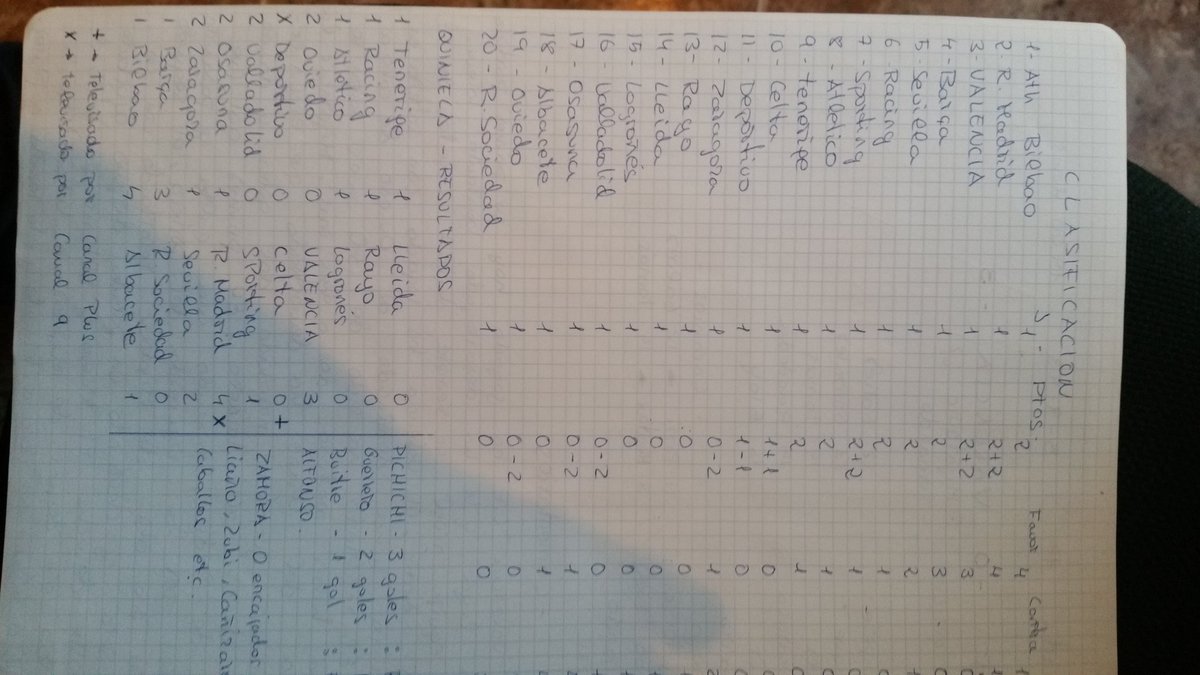 CLASIFICACION
J. Ptos. Favor Contra
1. Ath Bilbao 1 2 4 1
2. R. Madrid 1 2+2 4 1
3. VALENCIA 1 2+2 3 0
4. Barça 1 2 3 0
5. Sevilla 1 2 2 1
6. Racing 1 2 1 0
7. Sporting 1 2+2 1 0
8. Atlético 1 2 1 0
9. Tenerife 1 2 1 0
10. Celta 1 1+1 0 0
11. Deportivo 1 1-1 0 0
12. Zaragoza 1 0-2 1 2
13. Rayo 1 0 0
14. Lleida 1 0 0
15. Logroñés 1 0 0
16. Valladolid 1 0-2 0
17. Osasuna 1 0-2 1
18. Albacete 1 0 1
19. Oviedo 1 0-2 0
20. R. Sociedad 1 0 0
QUINIELA - RESULTADOS
1 Tenerife 1 Lleida 0
1 Racing 1 Rayo 0
1 Atlético 1 Logroñés 0
2 Oviedo 0 VALENCIA 3
X Deportivo 0 Celta 0 +
2 Valladolid 0 Sporting 1
2 Osasuna 1 R. Madrid 4 x
2 Zaragoza 1 Sevilla 2
1 Barça 3 R Sociedad 0
1 Bilbao 4 Albacete 1
+ → Televisado por Canal Plus
x → Televisado por Canal 9
PICHICHI - 3 goles :
Guerrero - 2 goles :
Buitre - 1 gol :
ALFONSO.
ZAMORA - 0 encajados
Liaño, Zubi, Cañizar
Ceballos etc.